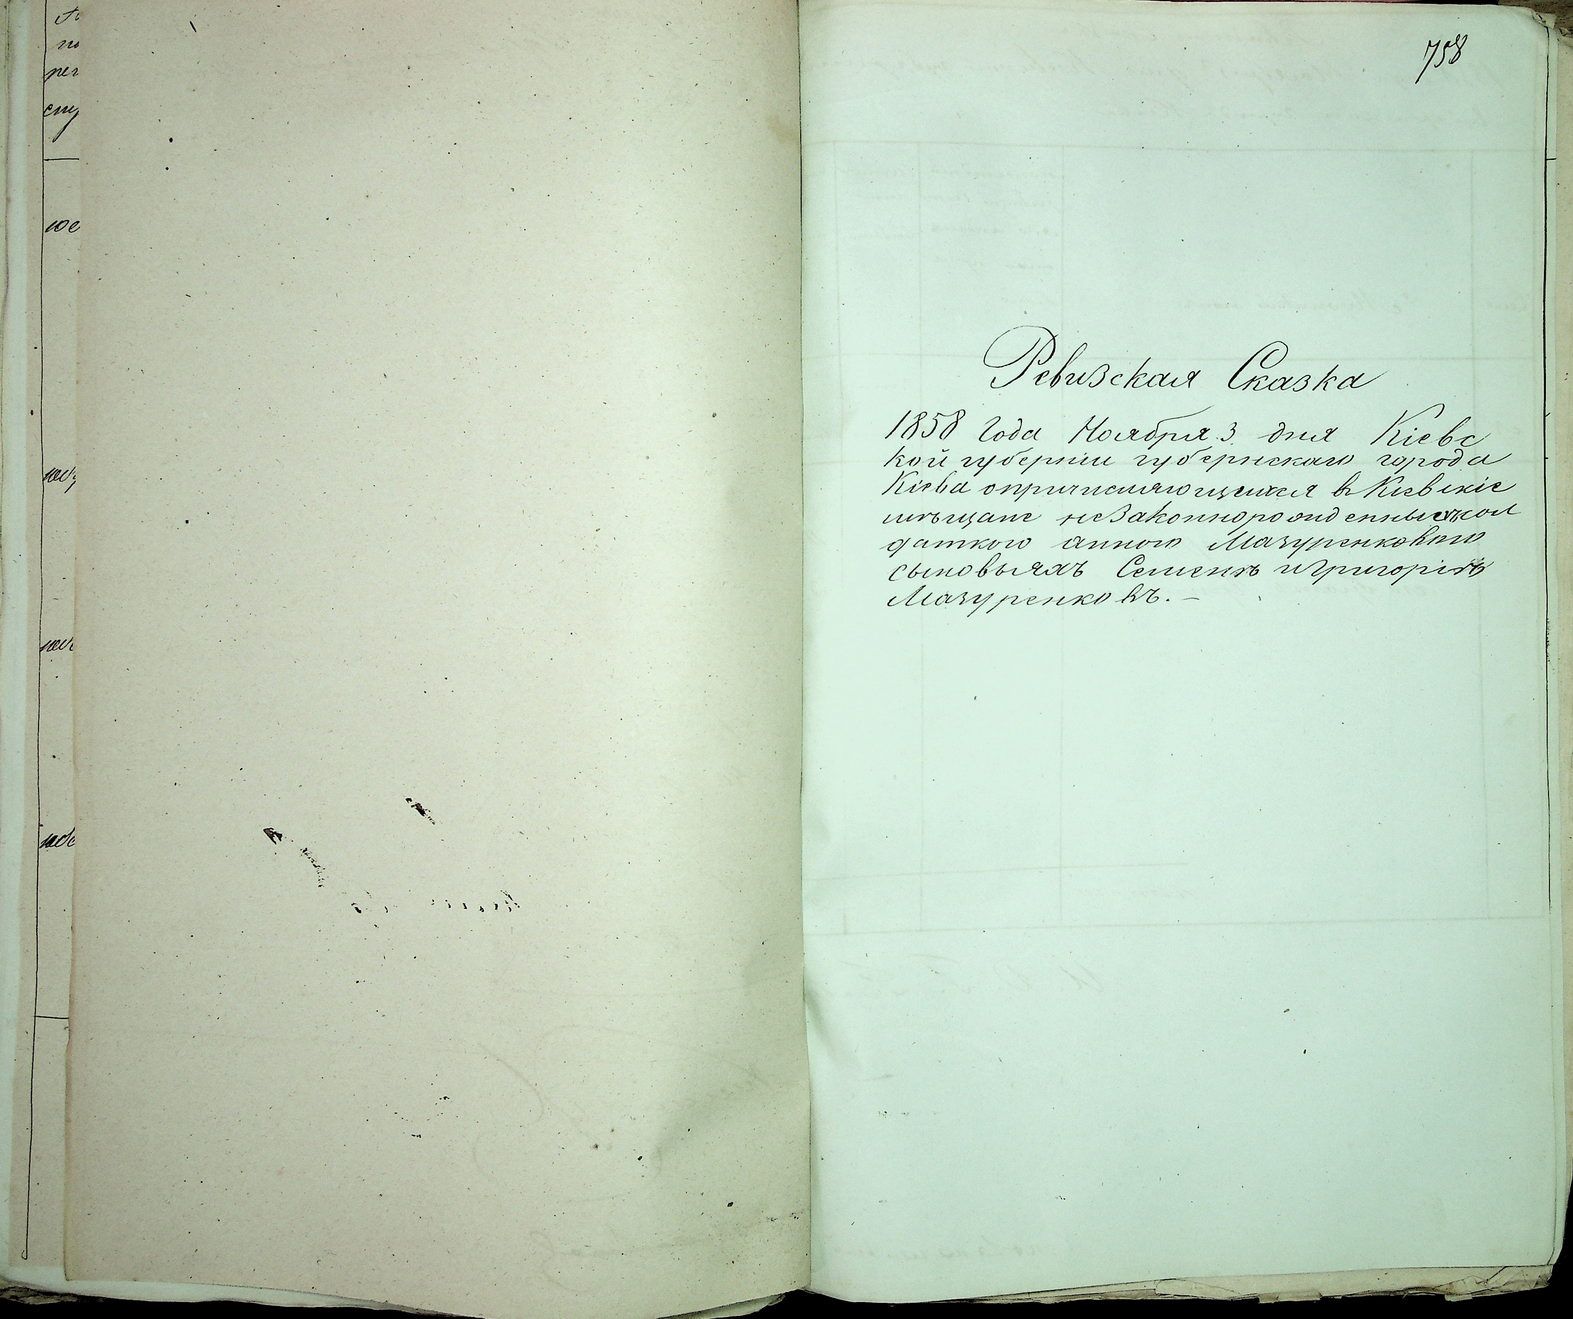 758
Ревизская Сказка
1858 Года Ноября 3 дня Кіевс
кой губерніи губернскаго города
Кіева опричисляющихся в Кіевскіе
мѣщане незаконнорожденных сол
даткою Анною Мазуренковою
сыновьяхъ Семенѣ и Григоріѣ
Мазуренковѣ. —